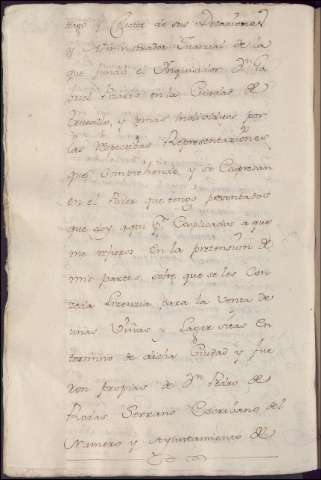 y Administrador Juarial de la
que fundó el Inquisidor Dn. Ga
briel en la Ciudad de
y demas Individuos por
las respectibas Representaziones
que Comprehende y se Expresan
en el Poder que tengo presentado
que doy aqui pr. Explicados a que
me refiero. En la pretension de
mis partes, sobre que se les Con
zeda Lizenzia para la Venta de
unas Viñas y Lagar sitas en
termino de dicha Ciudad y fue
ron propias de Dn. Pedro de
Rodas Serrano Escribano del
Numero y Ayuntamiento de